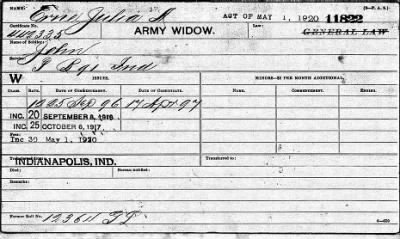 (3—P. A. S.)
NAME: Erne Julia A ACT OF MAY 1, 1920 11822
Certificate No. 442335 ARMY WIDOW. GENERAL LAW
Name of Soldier: John
Service: Ind
W ISSUE. MINORS—$2 PER MONTH ADDITIONAL.
CLASS. RATE. DATE OF COMMENCEMENT. DATE OF CERTIFICATE. NAME. COMMENCEMENT. ENDING.
12 25 Sep 96 17 Apr 97
INC. 20 SEPTEMBER 8, 1916
INC. 25 OCTOBER 6, 1917.
Fees:
Inc 30 May 1, 1920
Transferred to:
INDIANAPOLIS, IND.
Died:
Remarks:
Former Roll No. 123611
6—620